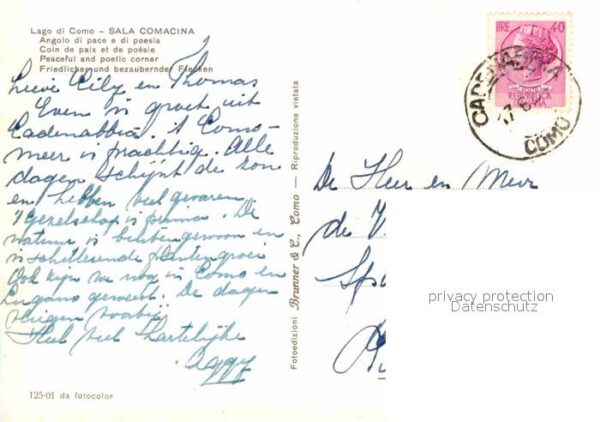 Lago di Como - SALA COMACINA
Angolo di pace e di poesia
Coin de paix et de poésie
Peaceful and poetic corner
Friedlicher und bezaubernder Flecken
Lieve Cily en Thomas
Even 'n groet uit
Cadenabbia. 't Como-
meer is prachtig. Alle
dagen schijnt de zon
en hebben veel gevaren
't gezelschap is prima. De
natuur is buitengewoon en
'n schitterende plantengroei
Ook zijn we nog in Como en
Lugano geweest. De dagen
vliegen voorbij
Heel veel hartelijks
Aggy
125-01 da fotocolor
Fotoedizioni Brunner & C., Como - Riproduzione vietata
LIRE 40
REPUBBLICA
ITALIANA
CADENABBIA
COMO
De Heer en Mevr
de V
privacy protection
Datenschutz